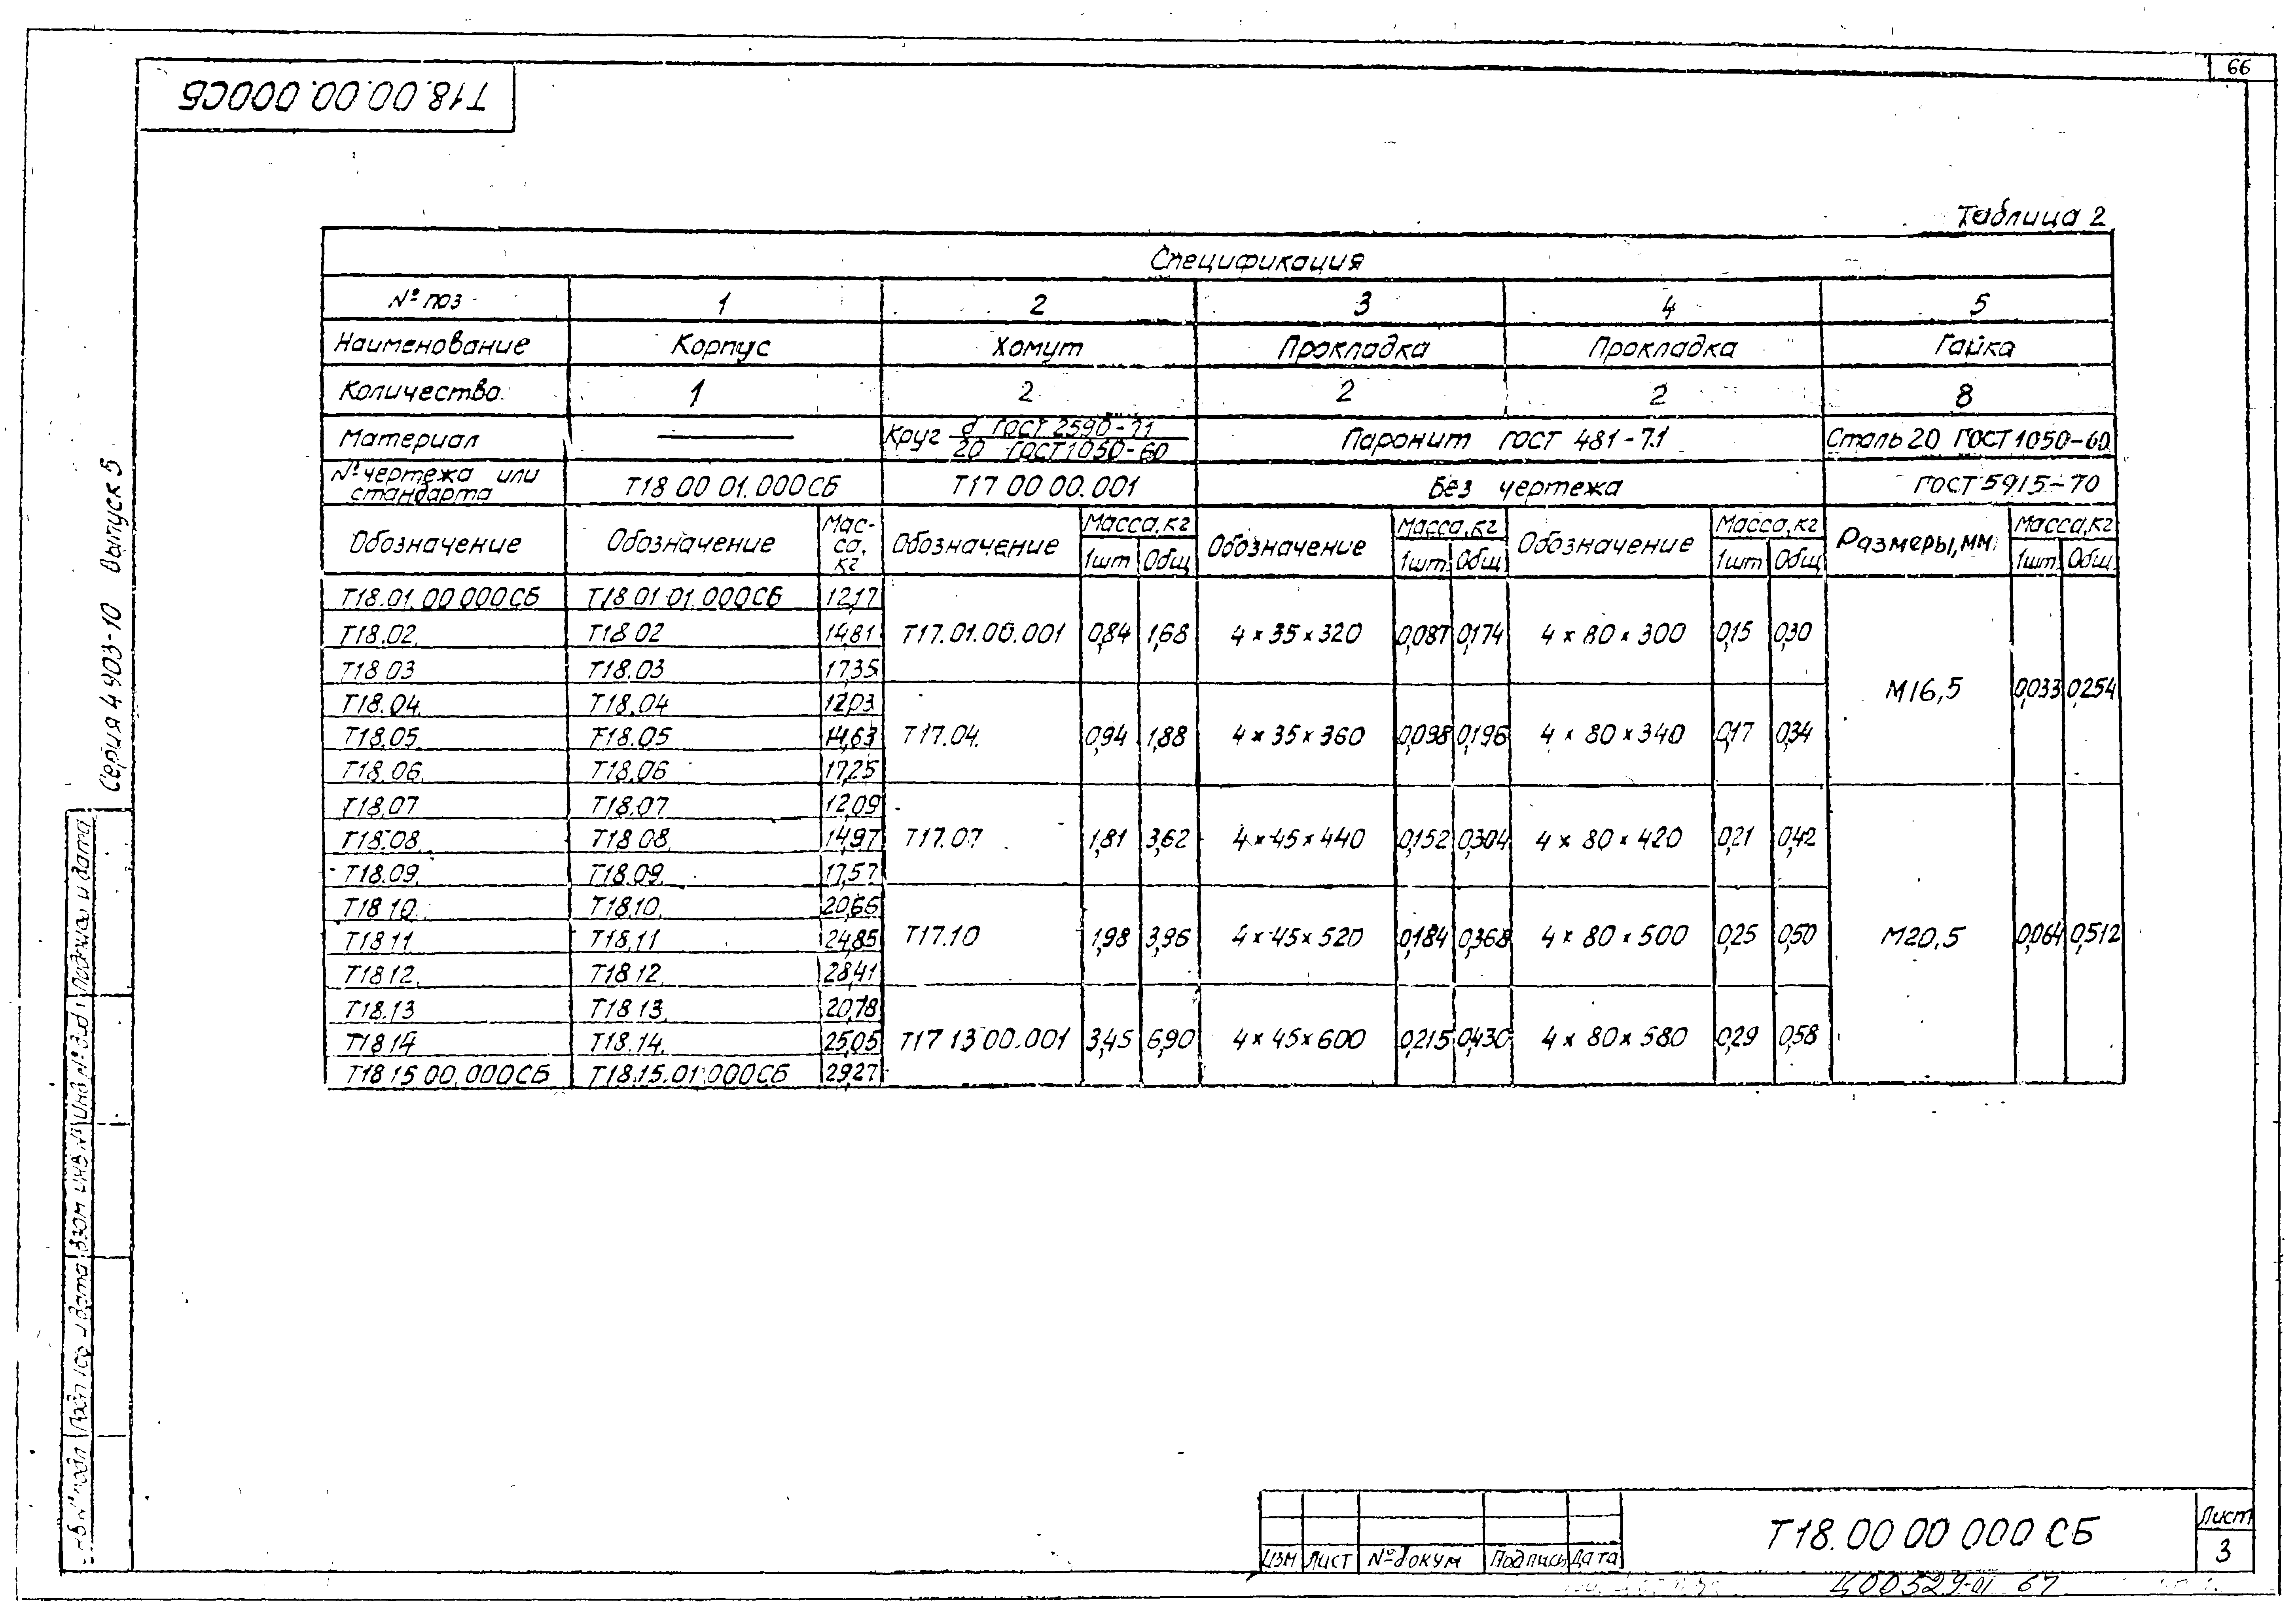 66
Т18.00.00.000СБ
Таблица 2
Спецификация
№ поз 1 2 3 4 5
Наименование Корпус Хомут Прокладка Прокладка Гайка
Количество 1 2 2 2 8
Материал Круг d ГОСТ 2590-71 / 20 ГОСТ 1050-60 Паронит ГОСТ 481-71 Сталь 20 ГОСТ 1050-60
№ чертежа или стандарта Т18 00 01.000СБ Т17 00 00.001 Без чертежа ГОСТ 5915-70
Обозначение Обозначение Масса, кг Обозначение Масса, кг 1шт Общ Обозначение Масса, кг 1шт Общ Обозначение Масса, кг 1шт Общ Размеры, мм Масса, кг 1шт Общ
Т18.01.00 000СБ Т18 01 01.000СБ 12,17
Т18.02 Т18 02 14,81 Т17.01.00.001 0,84 1,68 4×35×320 0,087 0,174 4×80×300 0,15 0,30
Т18 03 Т18.03 17,35
М16,5 0,033 0,254
Т18.04 Т18.04 12,03
Т18.05 Т18.05 14,63 Т17.04. 0,94 1,88 4×35×360 0,098 0,196 4×80×340 0,17 0,34
Т18.06 Т18.06 17,25
Т18.07 Т18.07 12,09
Т18.08 Т18 08 14,97 Т17.07 1,81 3,62 4×45×440 0,152 0,304 4×80×420 0,21 0,42
Т18.09. Т18.09. 17,57
Т18 10 Т18.10 20,66
Т18 11 Т18.11 24,85 Т17.10 1,98 3,96 4×45×520 0,184 0,368 4×80×500 0,25 0,50 М20,5 0,064 0,512
Т18 12 Т18 12 28,41
Т18.13 Т18 13 20,78
Т18 14 Т18.14 25,05 Т17 13 00.001 3,45 6,90 4×45×600 0,215 0,430 4×80×580 0,29 0,58
Т18 15 00.000СБ Т18.15.01.000СБ 29,27
Серия 4 903-10 Выпуск 5
Инв № подл Подпись и дата Взам инв № Инв № дубл Подпись и дата
Изм Лист № докум Подпись Дата
Т18.00 00 000 СБ
Лист
3
Ц00529-01 67